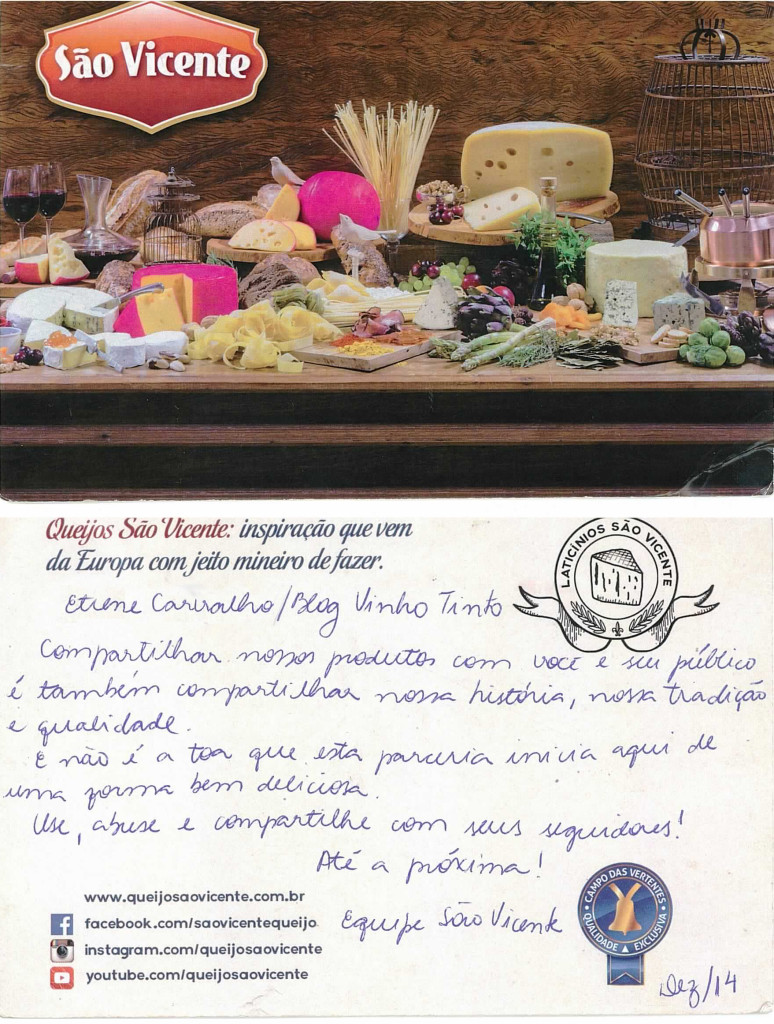 São Vicente
Queijos São Vicente: inspiração que vem
da Europa com jeito mineiro de fazer.
LATICÍNIOS SÃO VICENTE
Etiene Carvalho/Blog Vinho Tinto
Compartilhar nossos produtos com você e seu público
é também compartilhar nossa história, nossa tradição
e qualidade.
E não é a toa que esta parceria inicia aqui de
uma forma bem deliciosa.
Use, abuse e compartilhe com seus seguidores!
Até a próxima!
Equipe São Vicente
www.queijosaovicente.com.br
facebook.com/saovicentequeijo
instagram.com/queijosaovicente
youtube.com/queijosaovicente
CAMPO DAS VERTENTES
QUALIDADE EXCLUSIVA
Dez/14